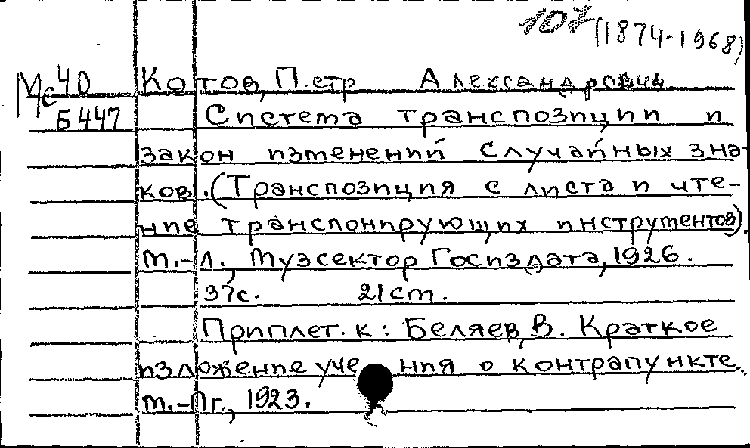 107 (1874-1968)
Мс 40 Котов, Петр Александрович
Б 447 Система транспозиции и
закон изменений случайных зна-
ков. (Транспозиция с листа и чте-
ние транспонирующих инструментов).
М.-Л., Музсектор Госиздата, 1926.
37с. 21 ст.
Приплет. к: Беляев, В. Краткое
изложение учения о контрапункте.
М.-Пг., 1923.